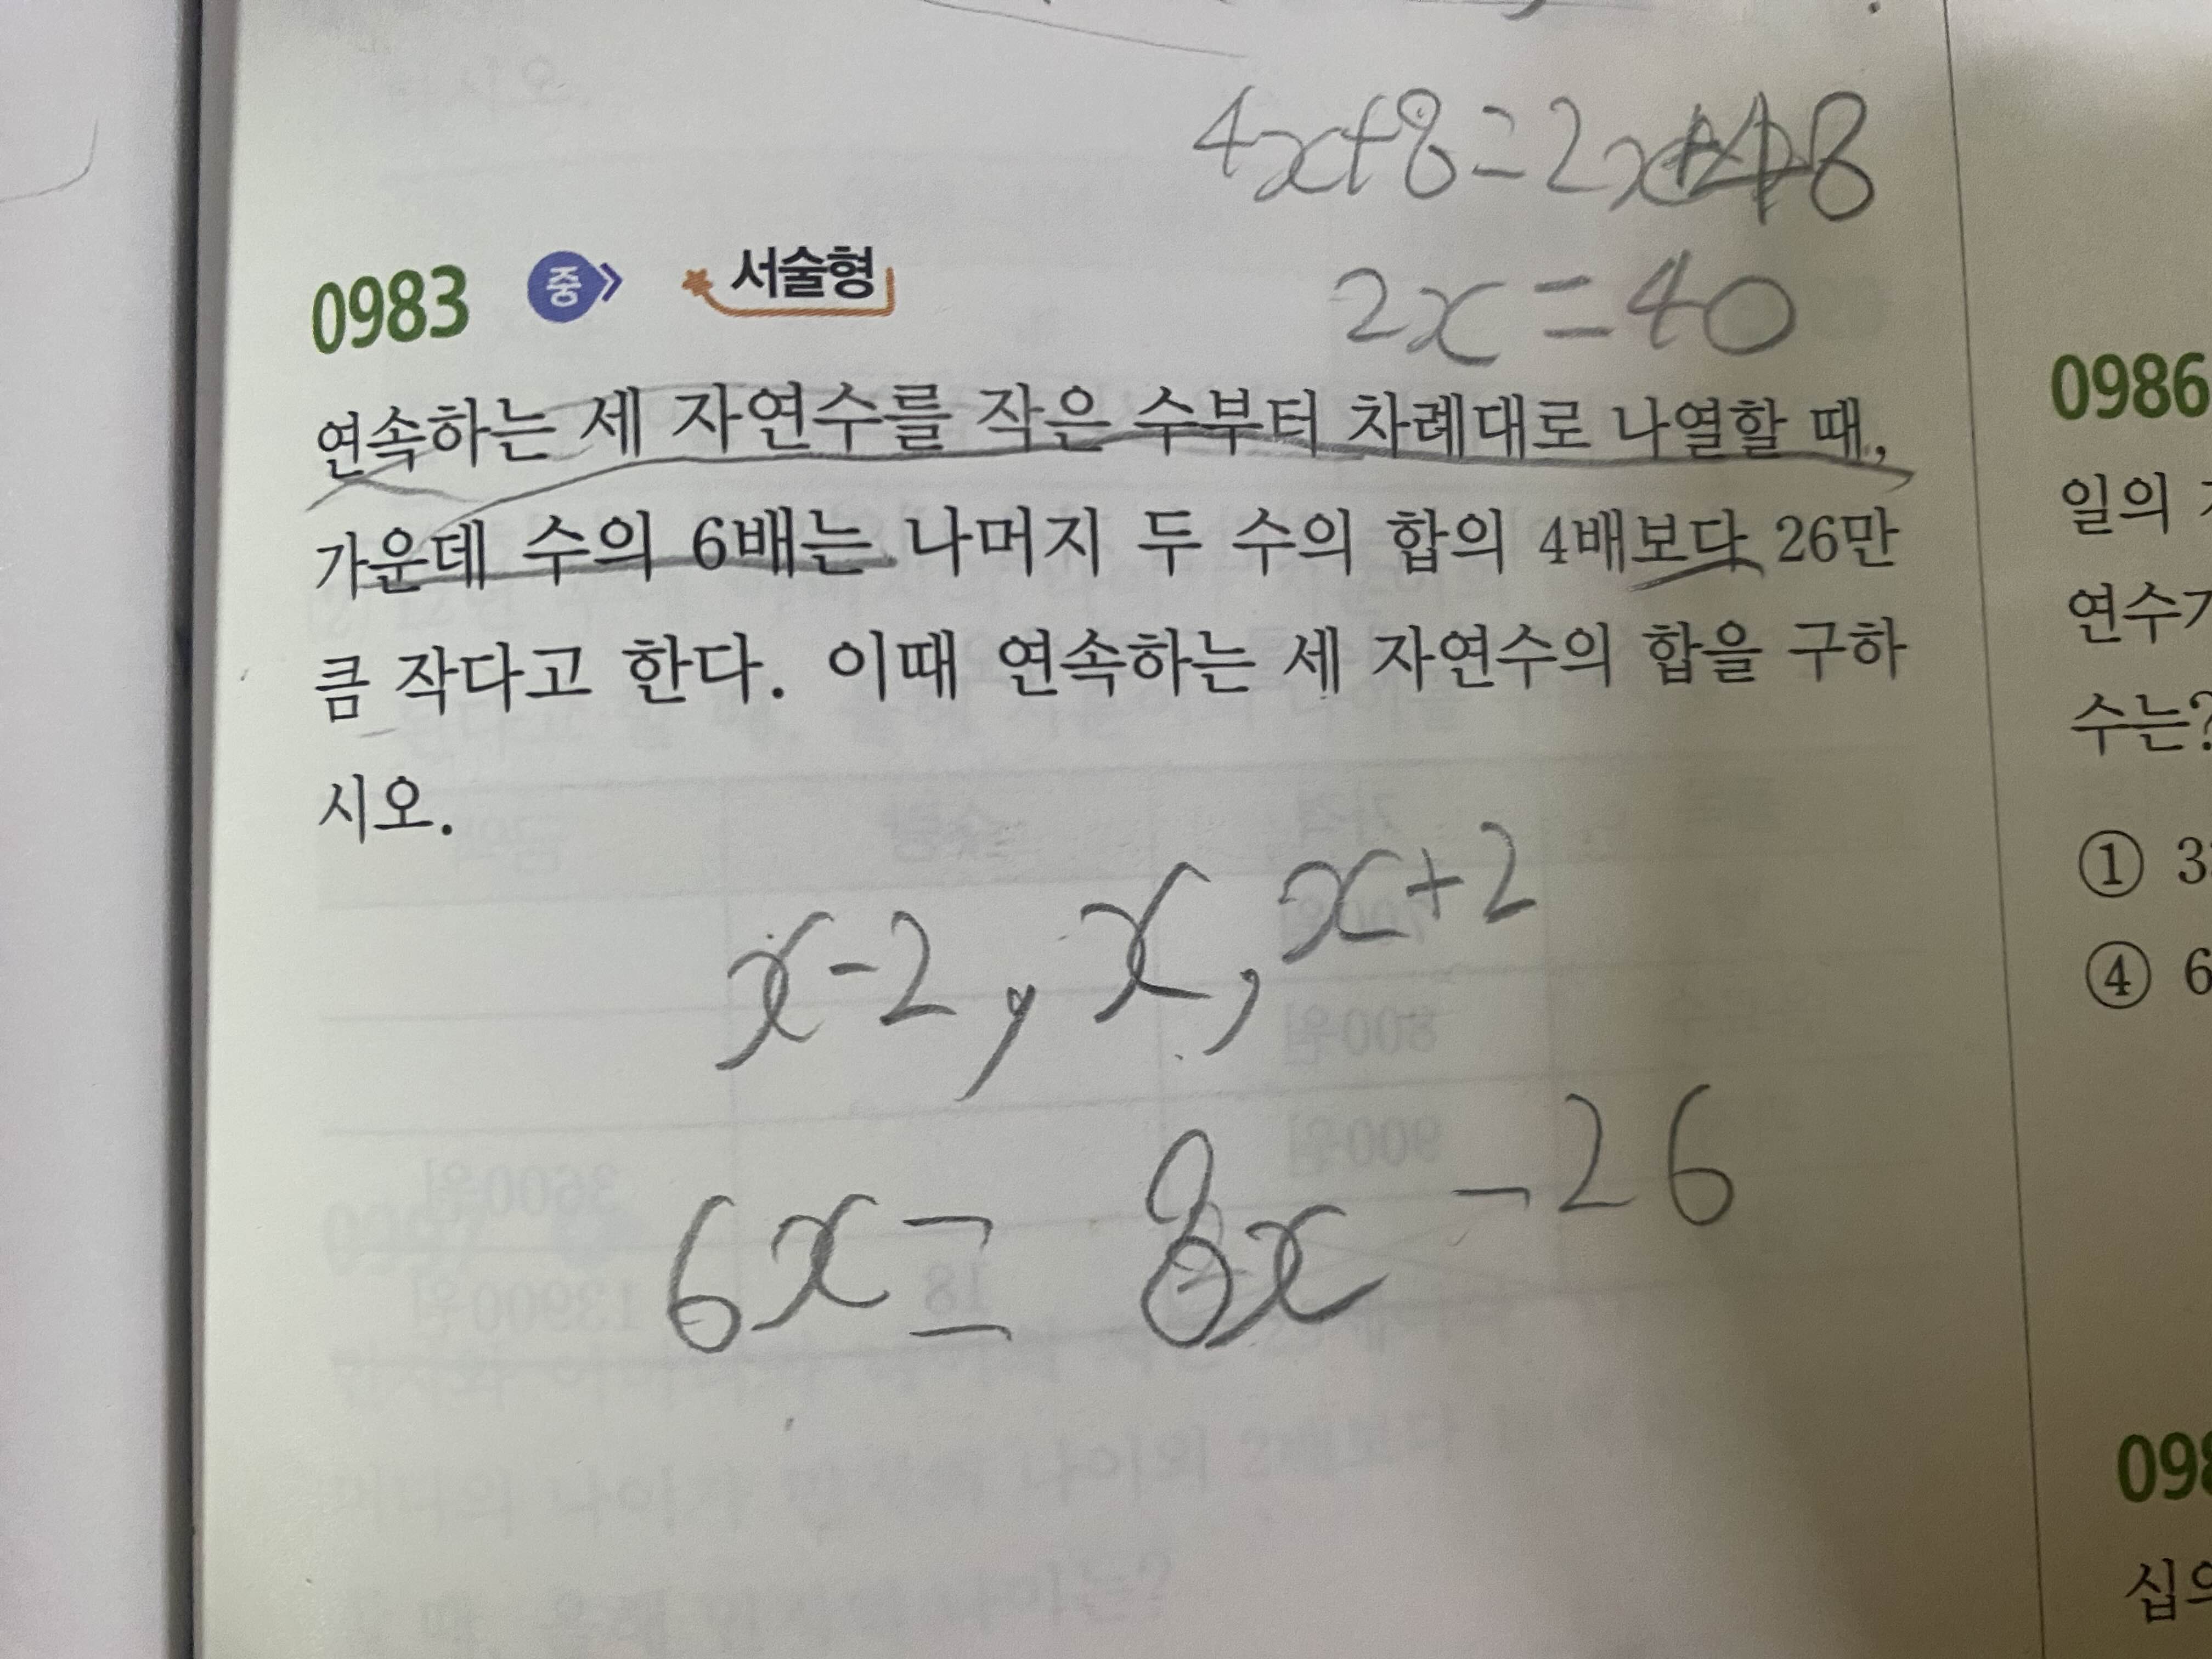 4x+8=2x+48
2x=40
0983 중 서술형
연속하는 세 자연수를 작은 수부터 차례대로 나열할 때,
가운데 수의 6배는 나머지 두 수의 합의 4배보다 26만
큼 작다고 한다. 이때 연속하는 세 자연수의 합을 구하
시오.
x-2, x, x+2
6x= 8x -26
0986
일의
연수
수는?
① 3
④ 6
098
십